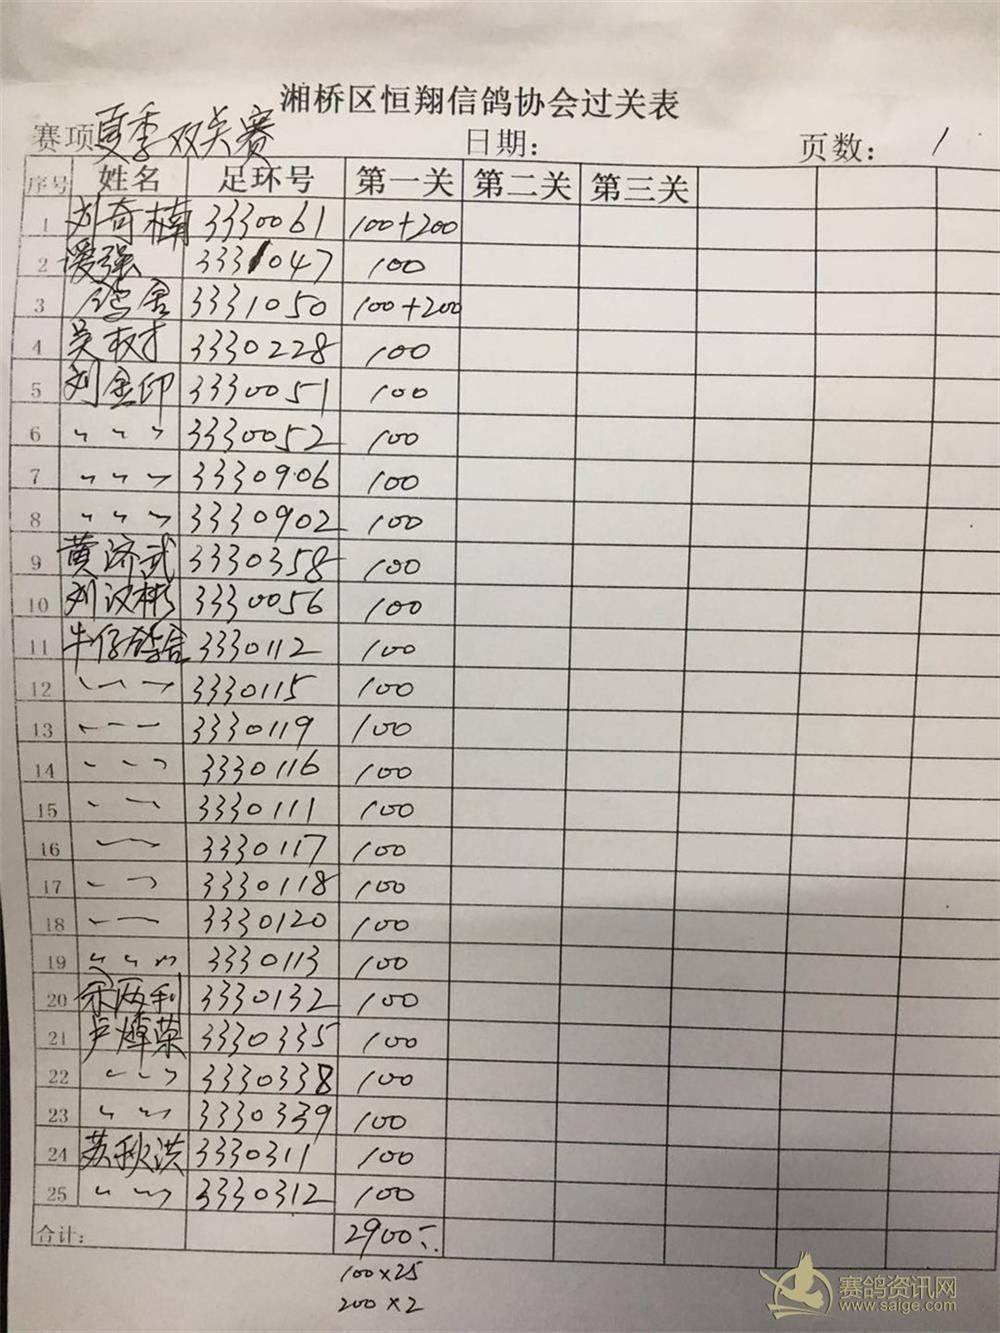 湘桥区恒翔信鸽协会过关表
赛项 夏季双关赛 日期： 页数： 1
序号 姓名 足环号 第一关 第二关 第三关
1 刘奇楠 3330061 100+200
2 强 3331047 100
3 鸽舍 3331050 100+200
4 吴树 3330228 100
5 刘金印 3330051 100
6 〃 〃 〃 3330052 100
7 〃 〃 〃 3330906 100
8 〃 〃 〃 3330902 100
9 黄济武 3330358 100
10 刘汉彬 3330056 100
11 牛仔鸽舍 3330112 100
12 〃 〃 〃 3330115 100
13 〃 〃 〃 3330119 100
14 〃 〃 〃 3330116 100
15 〃 〃 3330111 100
16 〃 〃 3330117 100
17 〃 〃 3330118 100
18 〃 〃 3330120 100
19 〃 〃 〃 3330113 100
20 余两利 3330132 100
21 卢焯荣 3330335 100
22 〃 〃 〃 3330338 100
23 〃 〃 3330339 100
24 苏秋洪 3330311 100
25 〃 〃 3330312 100
合计： 2900
100×25
200×2
赛鸽资讯网
www.saige.com